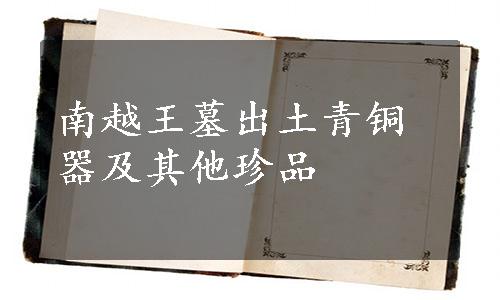 南越王墓出土青铜
器及其他珍品